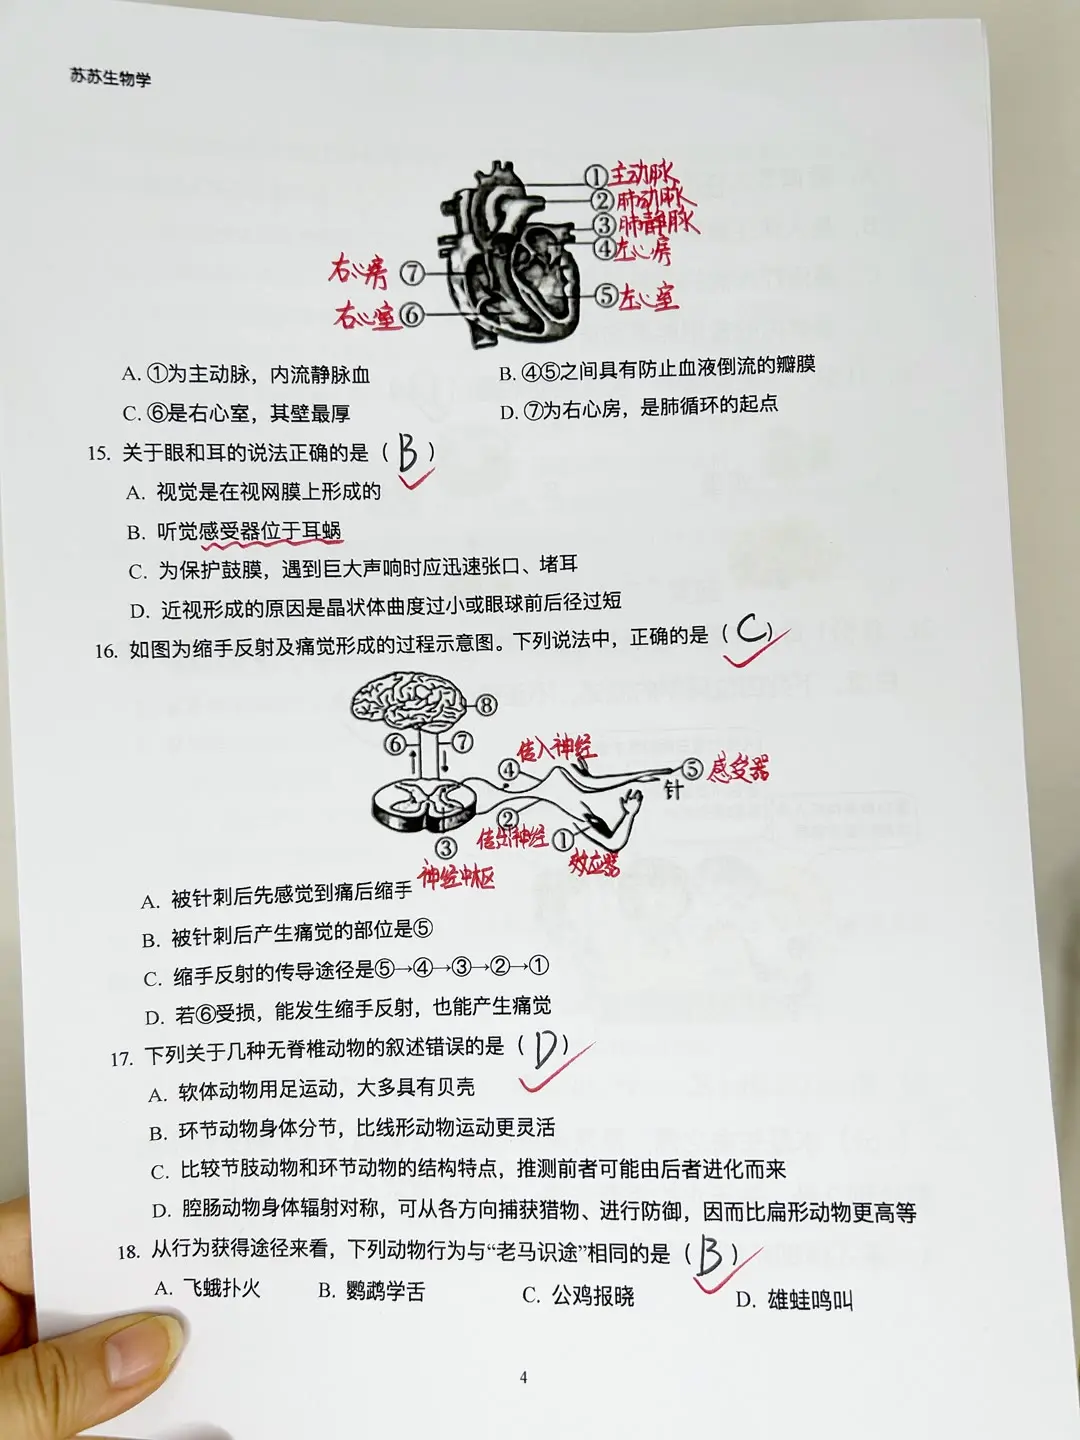 苏苏生物学
①主动脉
②肺动脉
③肺静脉
④左心房
右心房⑦
⑤左心室
右心室⑥
A. ①为主动脉，内流静脉血 B. ④⑤之间具有防止血液倒流的瓣膜
C. ⑥是右心室，其壁最厚 D. ⑦为右心房，是肺循环的起点
15. 关于眼和耳的说法正确的是（ B ）
A. 视觉是在视网膜上形成的
B. 听觉感受器位于耳蜗
C. 为保护鼓膜，遇到巨大声响时应迅速张口、堵耳
D. 近视形成的原因是晶状体曲度过小或眼球前后径过短
16. 如图为缩手反射及痛觉形成的过程示意图。下列说法中，正确的是（ C ）
⑧
⑥ ⑦ 传入神经
④ ⑤ 感受器
针
② 传出神经 ① 效应器
③
神经中枢
A. 被针刺后先感觉到痛后缩手
B. 被针刺后产生痛觉的部位是⑤
C. 缩手反射的传导途径是⑤→④→③→②→①
D. 若⑥受损，能发生缩手反射，也能产生痛觉
17. 下列关于几种无脊椎动物的叙述错误的是（ D ）
A. 软体动物用足运动，大多具有贝壳
B. 环节动物身体分节，比线形动物运动更灵活
C. 比较节肢动物和环节动物的结构特点，推测前者可能由后者进化而来
D. 腔肠动物身体辐射对称，可从各方向捕获猎物、进行防御，因而比扁形动物更高等
18. 从行为获得途径来看，下列动物行为与“老马识途”相同的是（ B ）
A. 飞蛾扑火 B. 鹦鹉学舌 C. 公鸡报晓 D. 雄蛙鸣叫
4